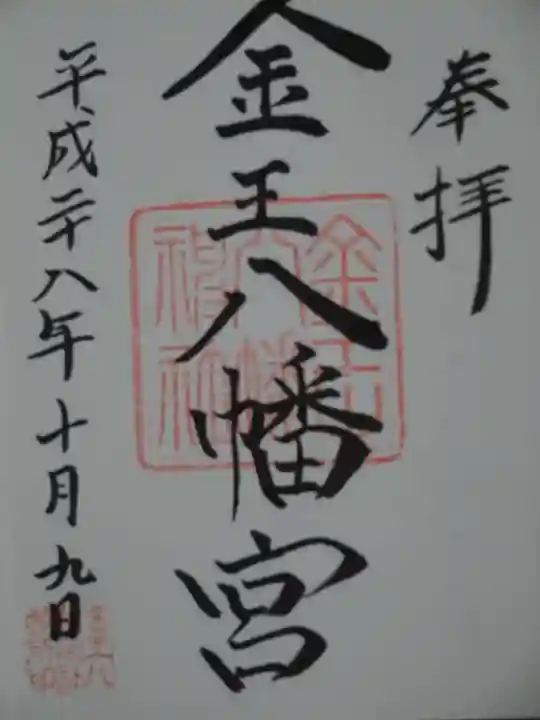 奉拝
金王八幡宮
平成二十八年十月九日